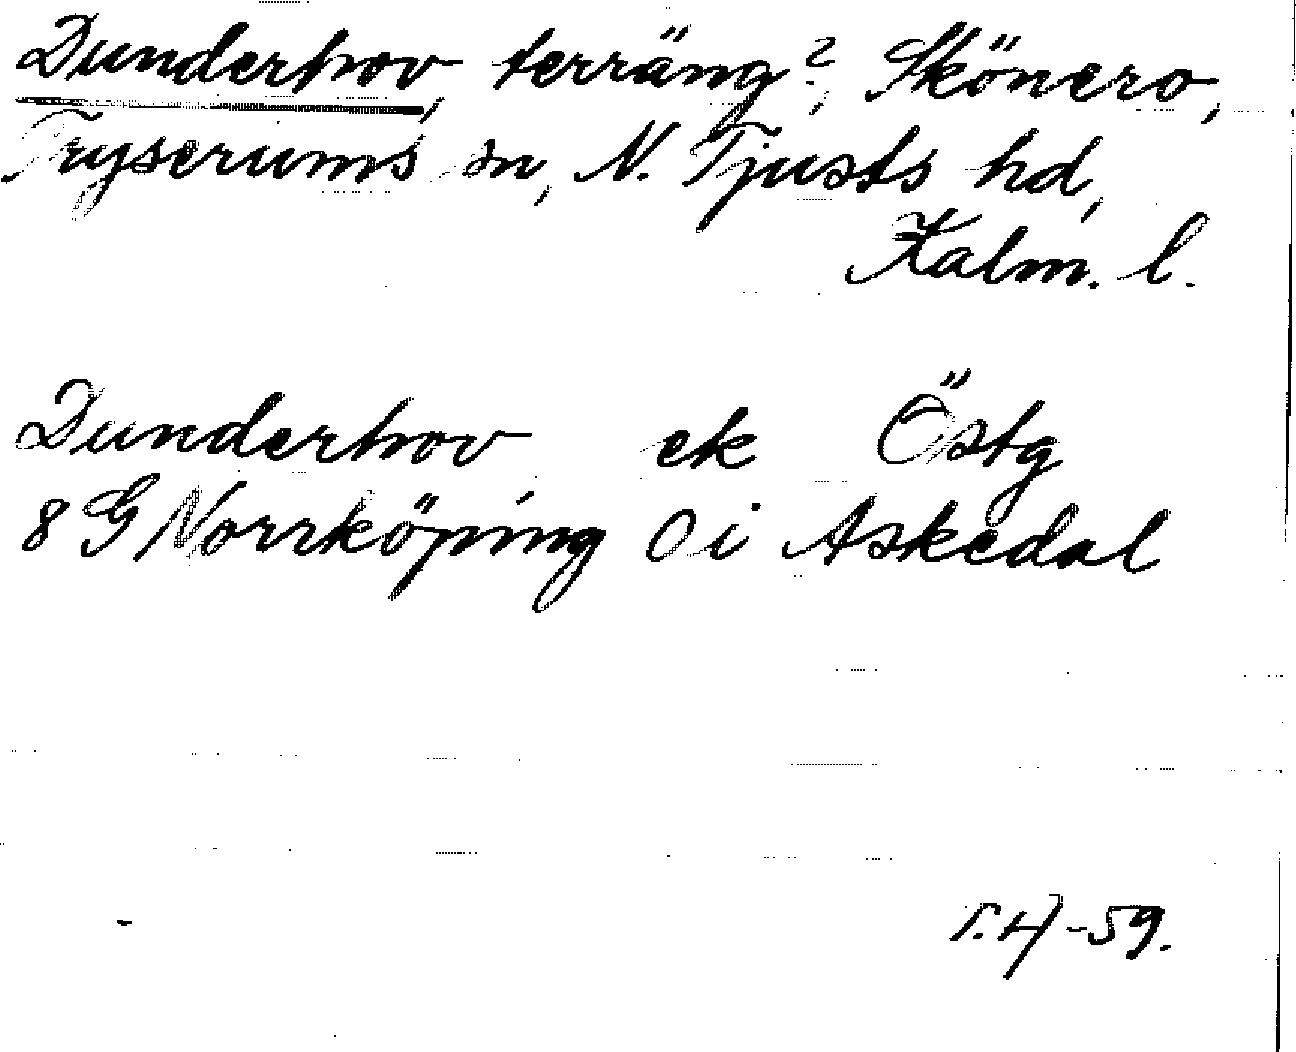 Dunderhov, terräng?, Skönero,
Tryserums sn, N. Tjusts hd,
Kalm. l.
Dunderhov ek Östg
8 G Norrköping 0 i Askedal
-59.